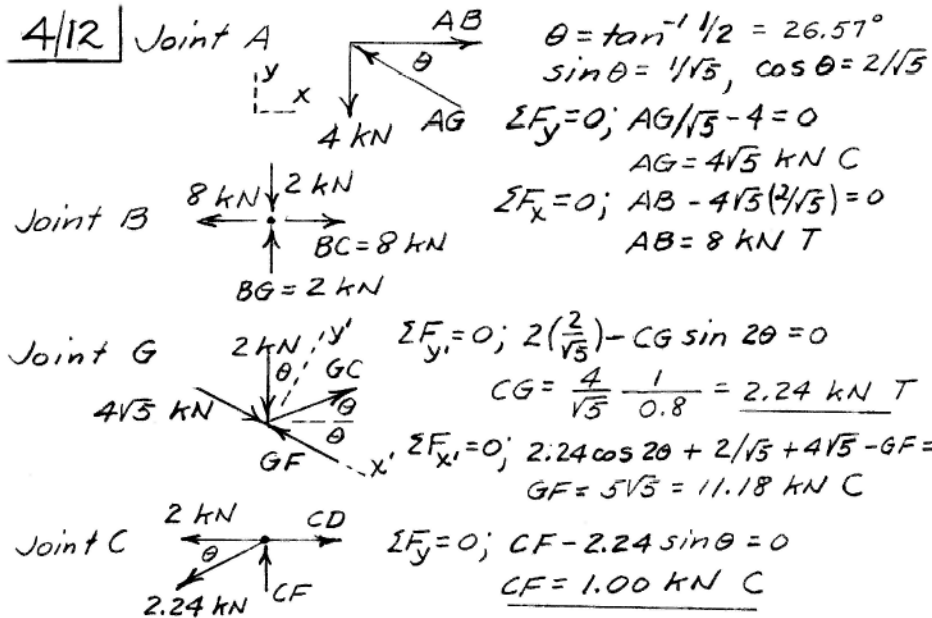 4/12 Joint A
y
x
AB
θ
4 kN
AG
θ = tan⁻¹ 1/2 = 26.57°
sin θ = 1/√5, cos θ = 2/√5
ΣFy = 0; AG/√5 - 4 = 0
AG = 4√5 kN C
ΣFx = 0; AB - 4√5(2/√5) = 0
AB = 8 kN T
Joint B
8 kN
2 kN
BC = 8 kN
BG = 2 kN
Joint G
2 kN
y'
θ
GC
4√5 kN
θ
θ
GF
x'
ΣFy' = 0; 2(2/√5) - CG sin 2θ = 0
CG = 4/√5 1/0.8 = 2.24 kN T
ΣFx' = 0; 2.24 cos 2θ + 2/√5 + 4√5 - GF =
GF = 5√5 = 11.18 kN C
Joint C
2 kN
CD
θ
2.24 kN
CF
ΣFy = 0; CF - 2.24 sin θ = 0
CF = 1.00 kN C